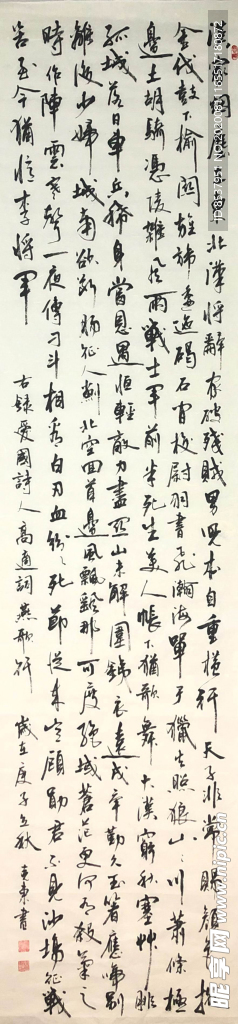 漢家煙塵在東北漢將辭家破殘賊男兒本自重橫行天子非常賜顏色摐
金伐鼓下榆關旌旆逶迤碣石間校尉羽書飛瀚海單于獵火照狼山山川蕭條極
邊土胡騎憑陵雜風雨戰士軍前半死生美人帳下猶歌舞大漠窮秋塞艸腓
孤城落日鬥兵稀身當恩遇恒輕敵力盡關山未解圍鐵衣遠戍辛勤久玉箸應啼別
離後少婦城南欲斷腸征人薊北空回首邊風飄飄那可度絕域蒼茫更何有殺氣三
時作陣雲寒聲一夜傳刁斗相看白刃血紛紛死節從來豈顧勛君不見沙場征戰
苦至今猶憶李將軍
古錄愛國詩人高適詞燕歌行 歲在庚子立秋 東書
昵享网 www.nipic.com
ID:8137951 NO:20200811165517189672